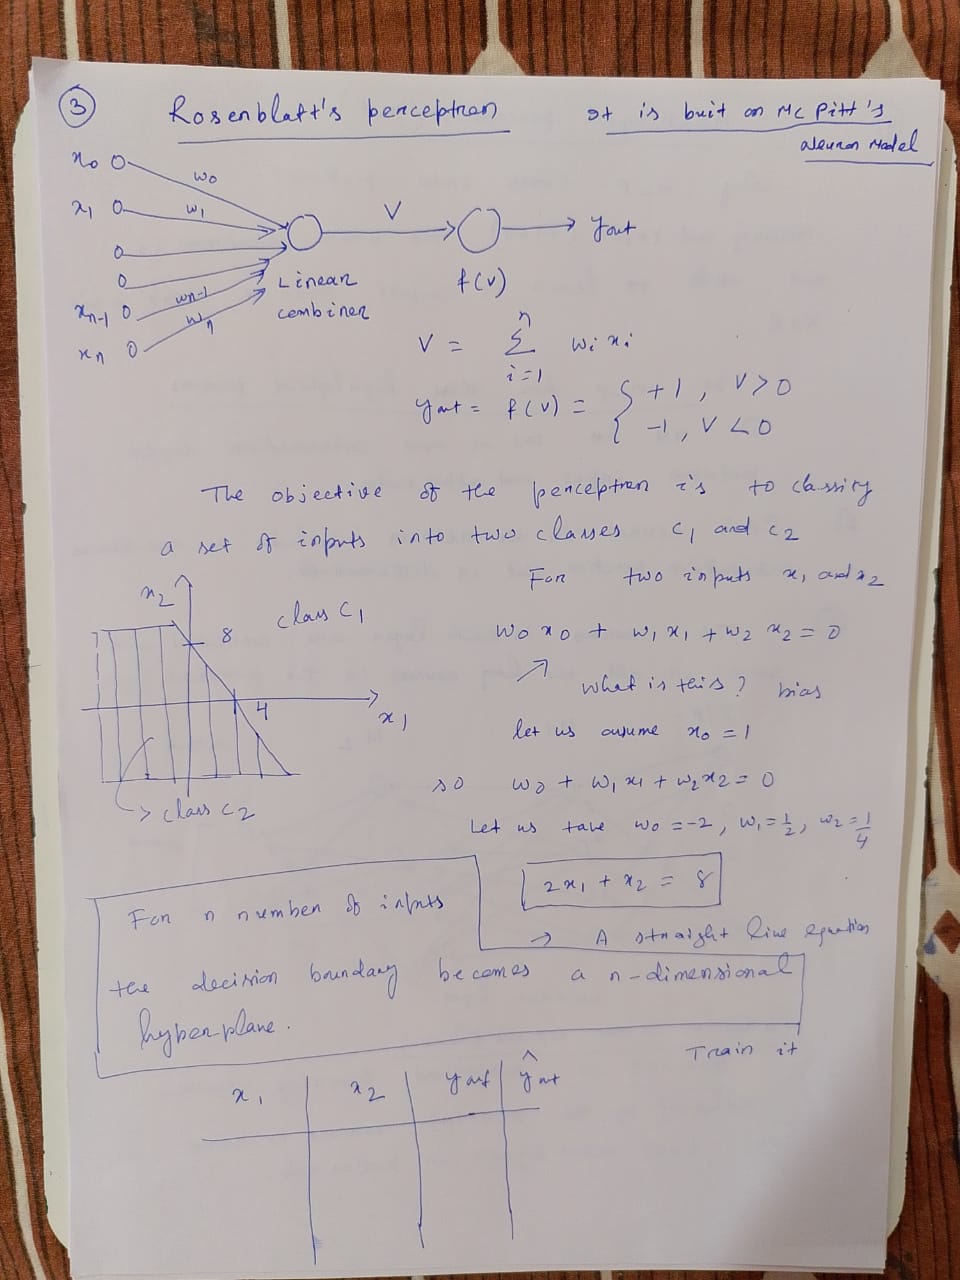 3 Rosenblatt's perceptron It is buit on Mc Pitt's
Neuron Model
x0 w0
x1 w1
V yout
xn-1 wn-1 Linear f(v)
xn wn combiner
V = n Σ i=1 wi xi
yout = f(v) = { +1, V>0
-1, V<0
The objective of the perceptron is to classify
a set of inputs into two classes c1 and c2
For two inputs x1 and x2
x2
8 class C1
w0 x0 + w1 x1 + w2 x2 = 0
what is this? bias
4 x1
let us assume x0 = 1
so w0 + w1 x1 + w2 x2 = 0
→ class C2
Let us take w0 = -2, w1 = 1/2, w2 = 1/4
2x1 + x2 = 8
→ A straight line equation
For n number of inputs
the decision boundary becomes a n-dimensional
hyperplane.
Train it
x1 x2 yout ŷout